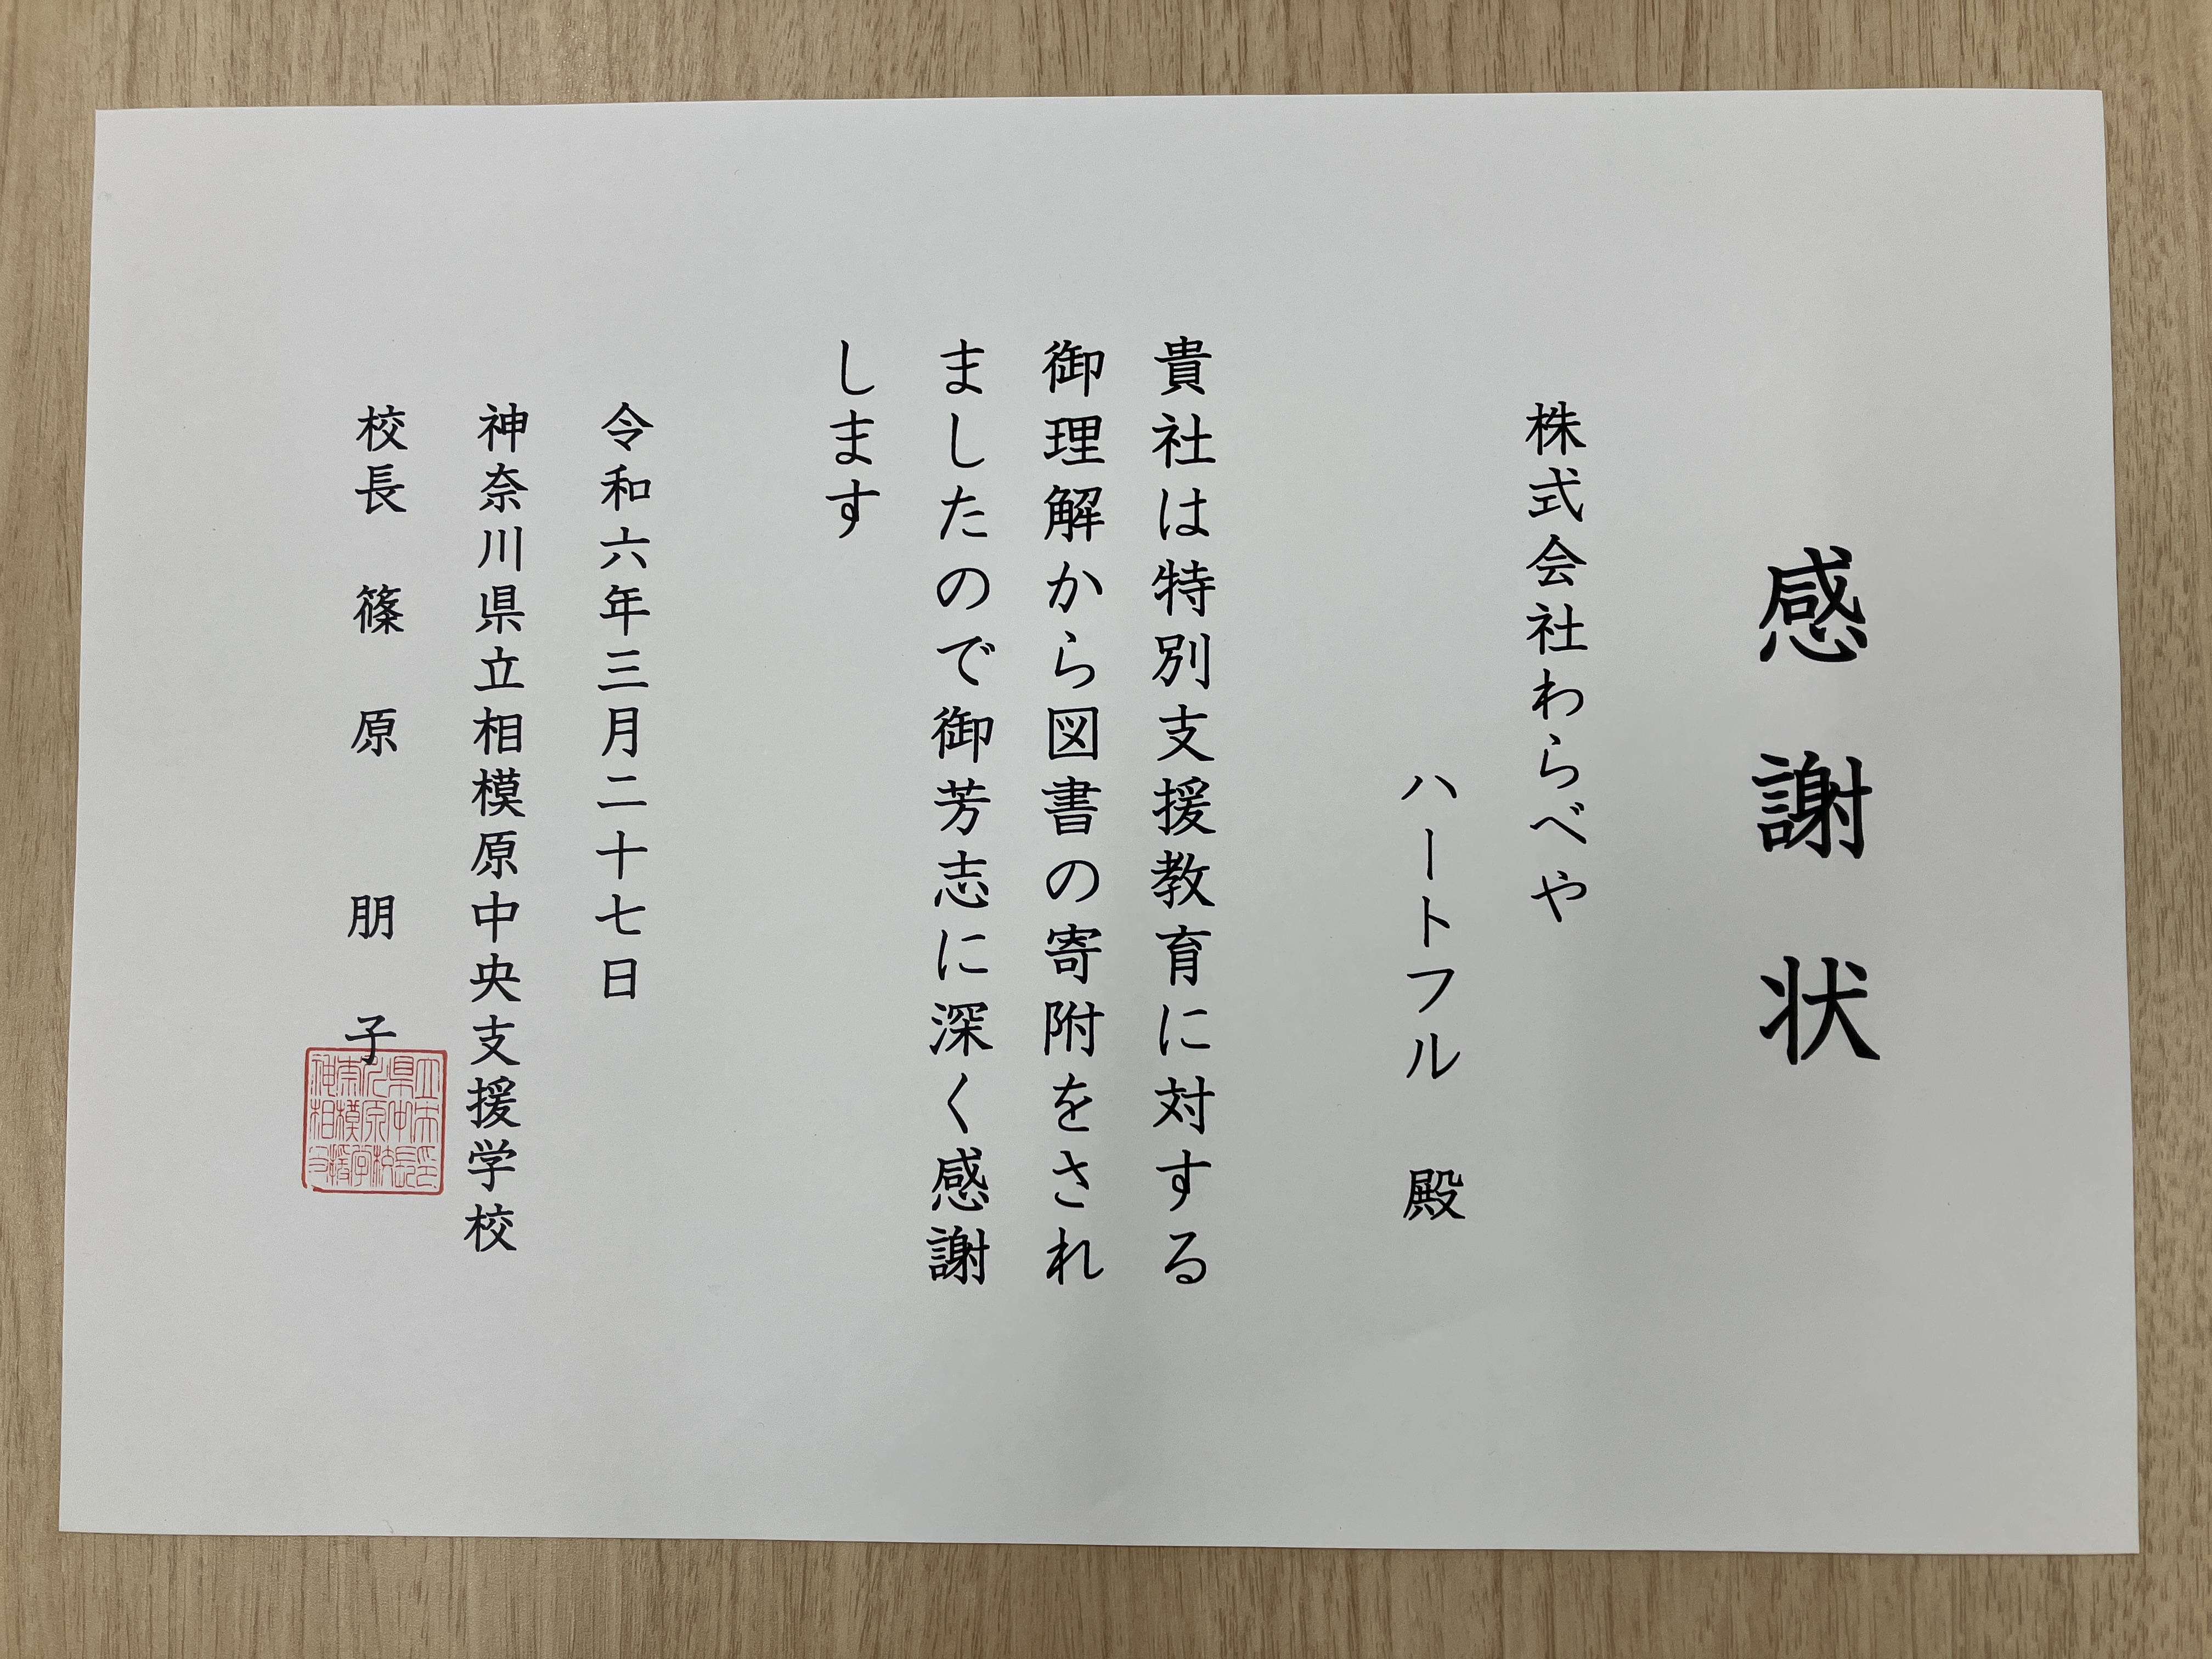 感謝状
株式会社わらべや
ハートフル　殿
貴社は特別支援教育に対する
御理解から図書の寄附をされ
ましたので御芳志に深く感謝
します
令和六年三月二十七日
神奈川県立相模原中央支援学校
校長　篠　原　　朋　子